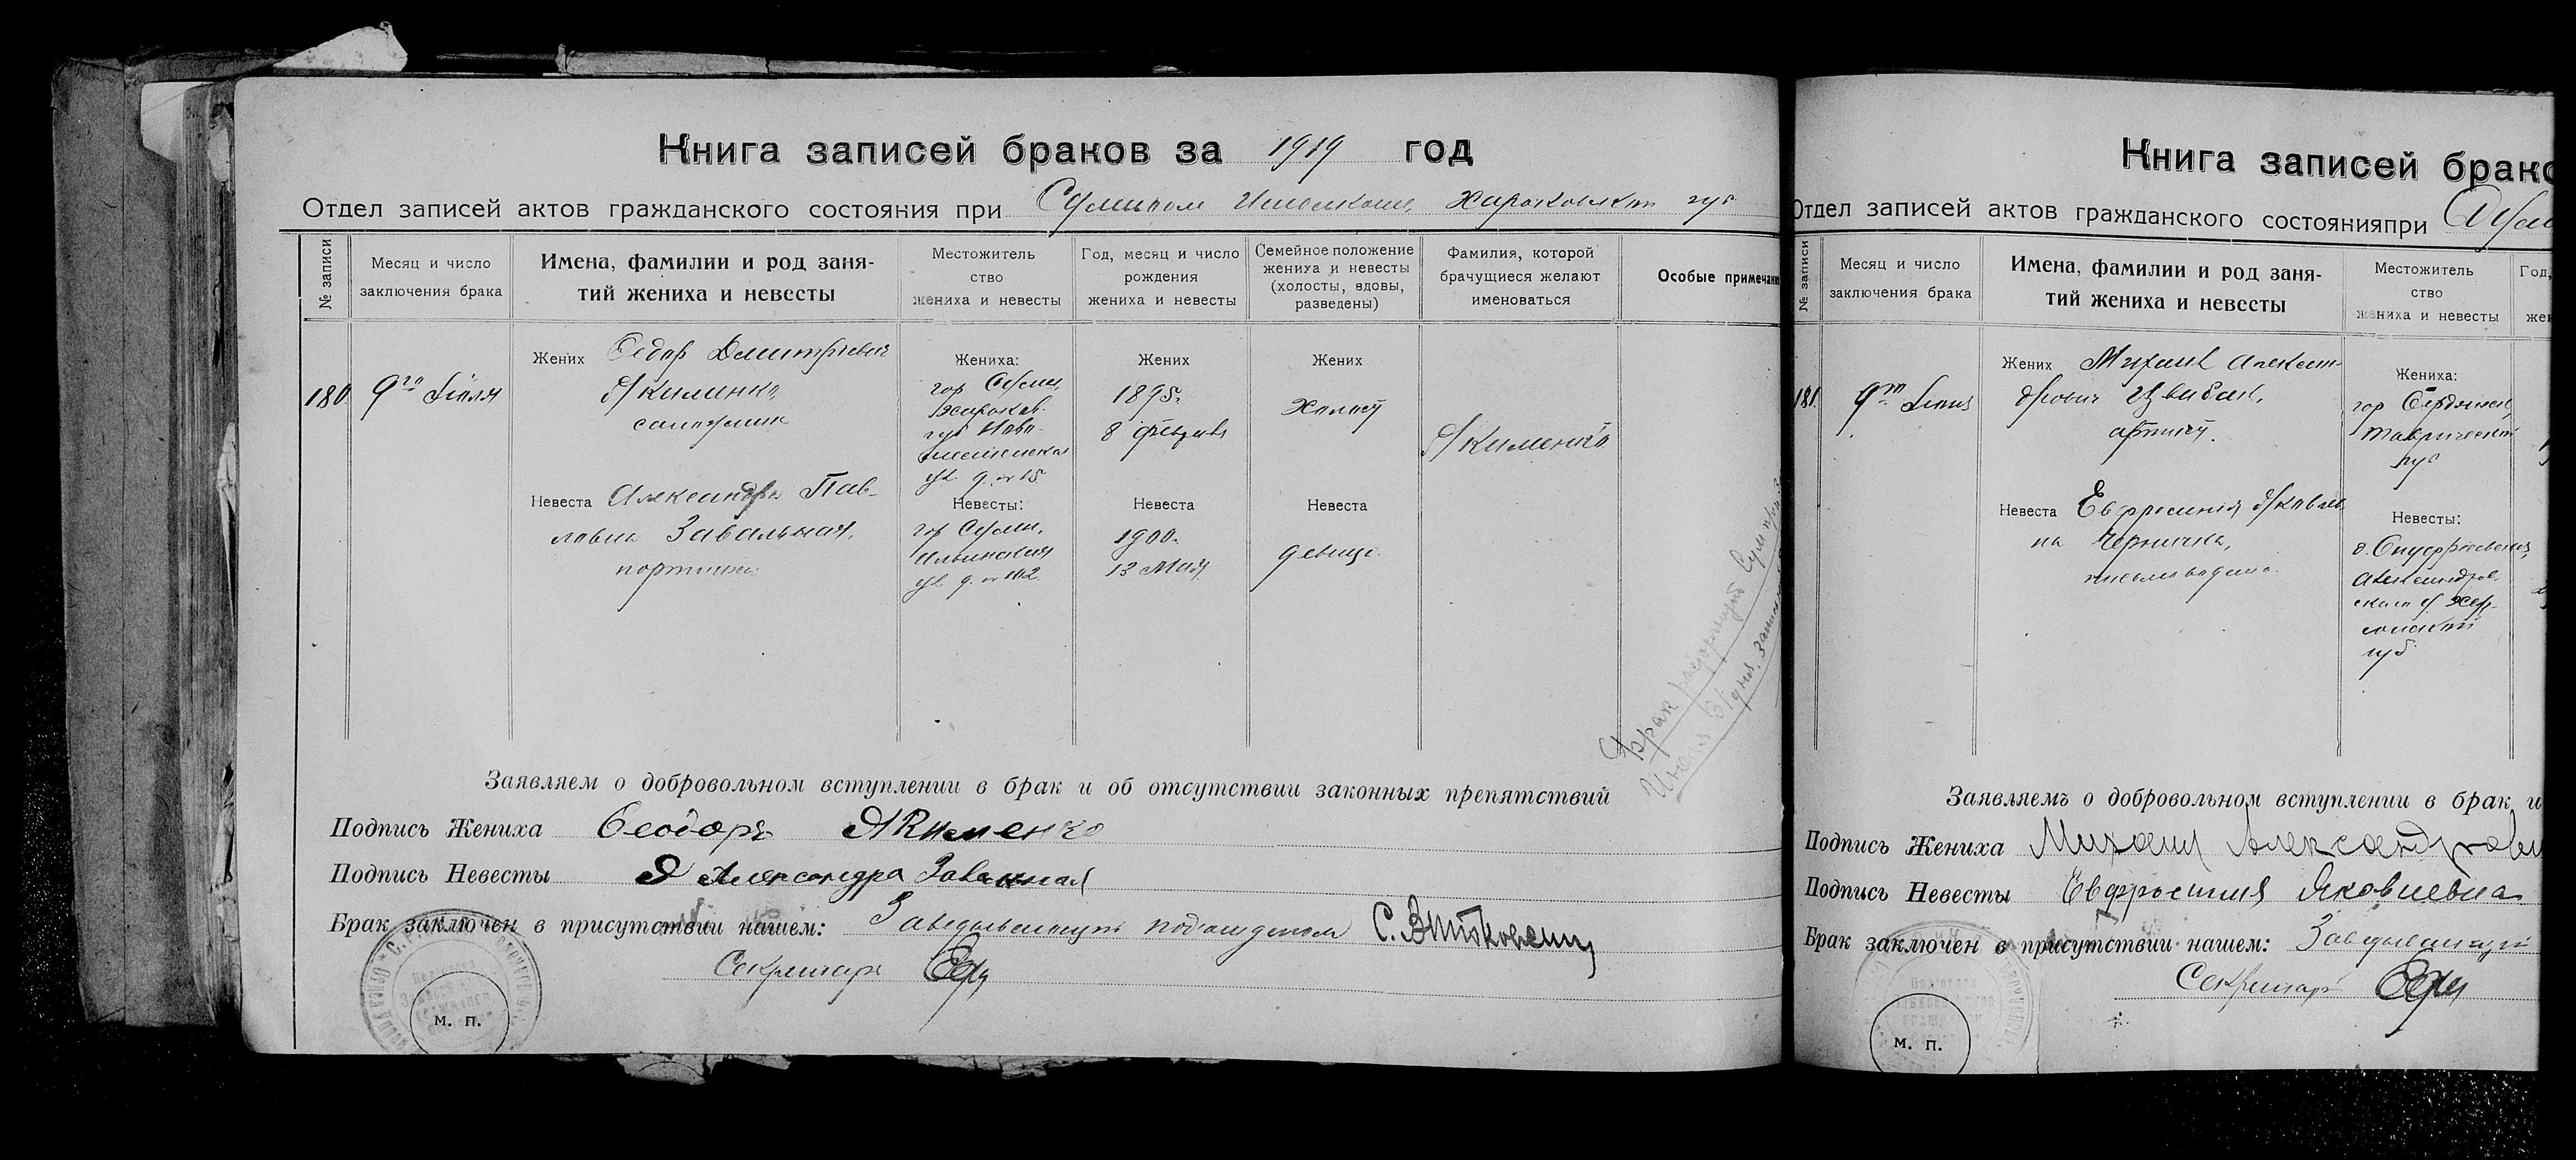 Книга записей браков за 1919 год
Отдел записей актов гражданского состояния при Сумском Исполкоме, Харьковской губ
№ записи
Месяц и число
заключения брака
Имена, фамилии и род заня-
тий жениха и невесты
Местожитель
ство
жениха и невесты
Год, месяц и число
рождения
жениха и невесты
Семейное положение
жениха и невесты
(холосты, вдовы,
разведены)
Фамилия, которой
брачущиеся желают
именоваться
Особые примечани
180
9го Июля
Жених Федор Дмитриевич
Якименко,
сапожник
Невеста Александра Пав-
ловна Завальная,
портниха
Жениха:
гор Сумы,
Харьков.
губ Ново-
ул д. № 15
Невесты:
гор Сумы,
Ильинская
ул д. № 112
Жених
1895г
8 февраля
Невеста
1900г
13 Мая
Жених
Холост
Невеста
девица
Якименко
Брак расторгнут Сум
Июля
Заявляем о добровольном вступлении в брак и об отсутствии законных препятствий
Подпись Жениха Феодоръ Якименко
Подпись Невесты Я Александра Завальная
Брак заключен в присутствии нашем: Заведывающий подотделом
Секретарь
М. П.
Книга записей брако
Отдел записей актов гражданского состояния при Сум
№ записи
Месяц и число
заключения брака
Имена, фамилии и род заня-
тий жениха и невесты
Местожитель
ство
жениха и невесты
Год,
жен
181
9го Июля
Жених Михаил Алексан-
дрович Цвибак,
артист.
Невеста Евфросиния Яковлев
на
Жениха:
гор Бердянск,
Таврической
губ
Невесты:
Александров.
ского у Хер-
сонской
губ
Заявляемъ о добровольном вступлении в брак и
Подпись Жениха Михаил Александрови
Подпись Невесты Евфросиния Яковлевна
Брак заключен в присутствии нашем: Заведывающий
Секретарь
М. П.